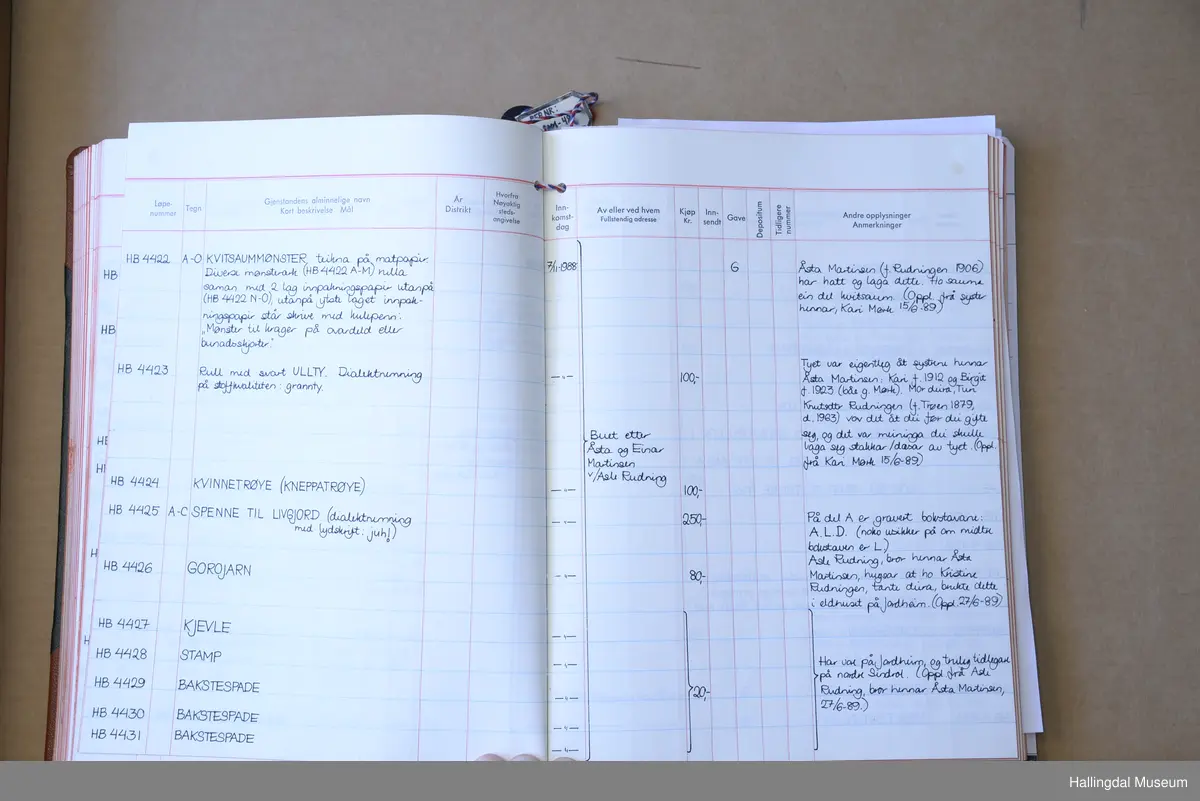 Løpe-
nummer
Tegn
Gjenstandens alminnelige navn
Kort beskrivelse Mål
År
Distrikt
Hvorfra
Nøyaktig
steds-
angivelse
Inn-
komst-
dag
Av eller ved hvem
Fullstendig adresse
Kjøp
Kr.
Inn-
sendt
Gave
Depositum
Tidligere
nummer
Andre opplysninger
Anmerkninger
HB
HB
HB 4422 A-O KVITSAUMMØNSTER, teikna på matpapir.
Diverse mønsterark (HB 4422 A-M) rulla
saman med 2 lag innpakningspapir utanpå
(HB 4422 N-O), utanpå ytste laget innpak-
ningspapir står skrive med kulepenn:
"Mønster til krager på overdeld eller
bunadsskjorter."
7/11-1988
G
Åsta Martinsen (f. Rudningen 1906)
har hatt og laga dette. Ho sauma
ein del kvitsaum. (Oppl. frå syster
hennar, Kari Mørk 15/6-89)
HB 4423 Rull med svart ULLTY. Dialektnemning
på stoffkvaliteten: grannty.
— " —
100,-
Tyet var eigentleg åt systrene hennar
Åsta Martinsen: Kari f. 1912 og Birgit
f. 1923 (båe g. Mørk). Mor deira, Turi
Knutsdtr Rudningen (f. Trøen 1879,
d. 1963) vov det åt dei før dei gifte
seg, og det var meininga dei skulle
laga seg stakkar/ av tyet. (Oppl.
frå Kari Mørk 15/6-89)
Buet etter
Åsta og Einar
Martinsen
v/Asle Rudning
HB 4424 KVINNETRØYE (KNEPPATRØYE)
— " —
100,-
HB 4425 A-C SPENNE TIL LIVGJORD (dialektnemning
med lydskrift: juh!)
— " —
250,-
På del A er gravert bokstavane:
A.L.D. (noko usikker på om midtre
bokstaven er L)
HB 4426 GOROJARN
— " —
80,-
Asle Rudning, bror hennar Åsta
Martinsen, hugsar at ho Kristine
Rudningen, tante deira, brukte dette
i eldhuset på Jordheim. (Oppl. 27/6-89)
HB 4427 KJEVLE
— " —
HB 4428 STAMP
— " —
HB 4429 BAKSTESPADE
— " —
HB 4430 BAKSTESPADE
— " —
HB 4431 BAKSTESPADE
— " —
20,-
Har vore på Jordheim, og truleg tidlegare
på nordre Sindrol. (Oppl. frå Asle
Rudning, bror hennar Åsta Martinsen,
27/6-89.)
Hallingdal Museum